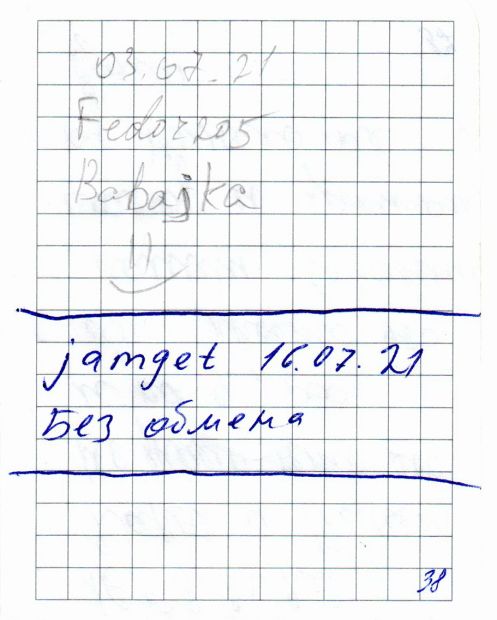 03.07.21
Fedor205
Babajka
jamget 16.07.21
Без обмена
38